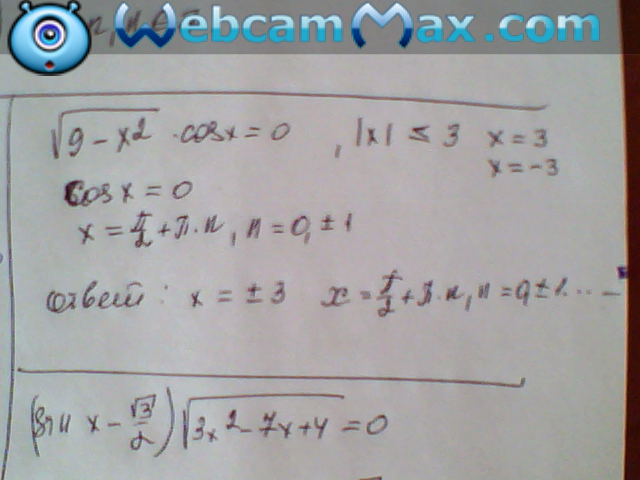 WebcamMax.com
√(9 − x²) · cos x = 0 , |x| ≤ 3 x = 3
x = −3
Cos x = 0
x = π/2 + π·n, n = 0, ±1
ответ: x = ±3 x = π/2 + π·n, n = 0 ±1...
(sin x − √3/2) √(3x² − 7x + 4) = 0